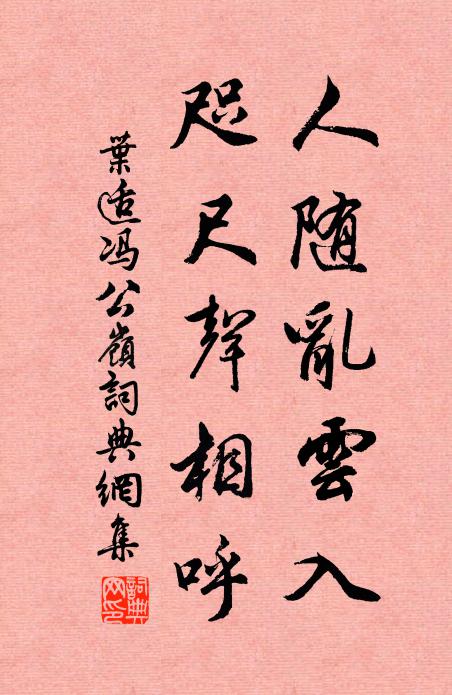 人随亂雲入
咫尺聲相呼
葉适馮公嶺詞典網集
詞典網印